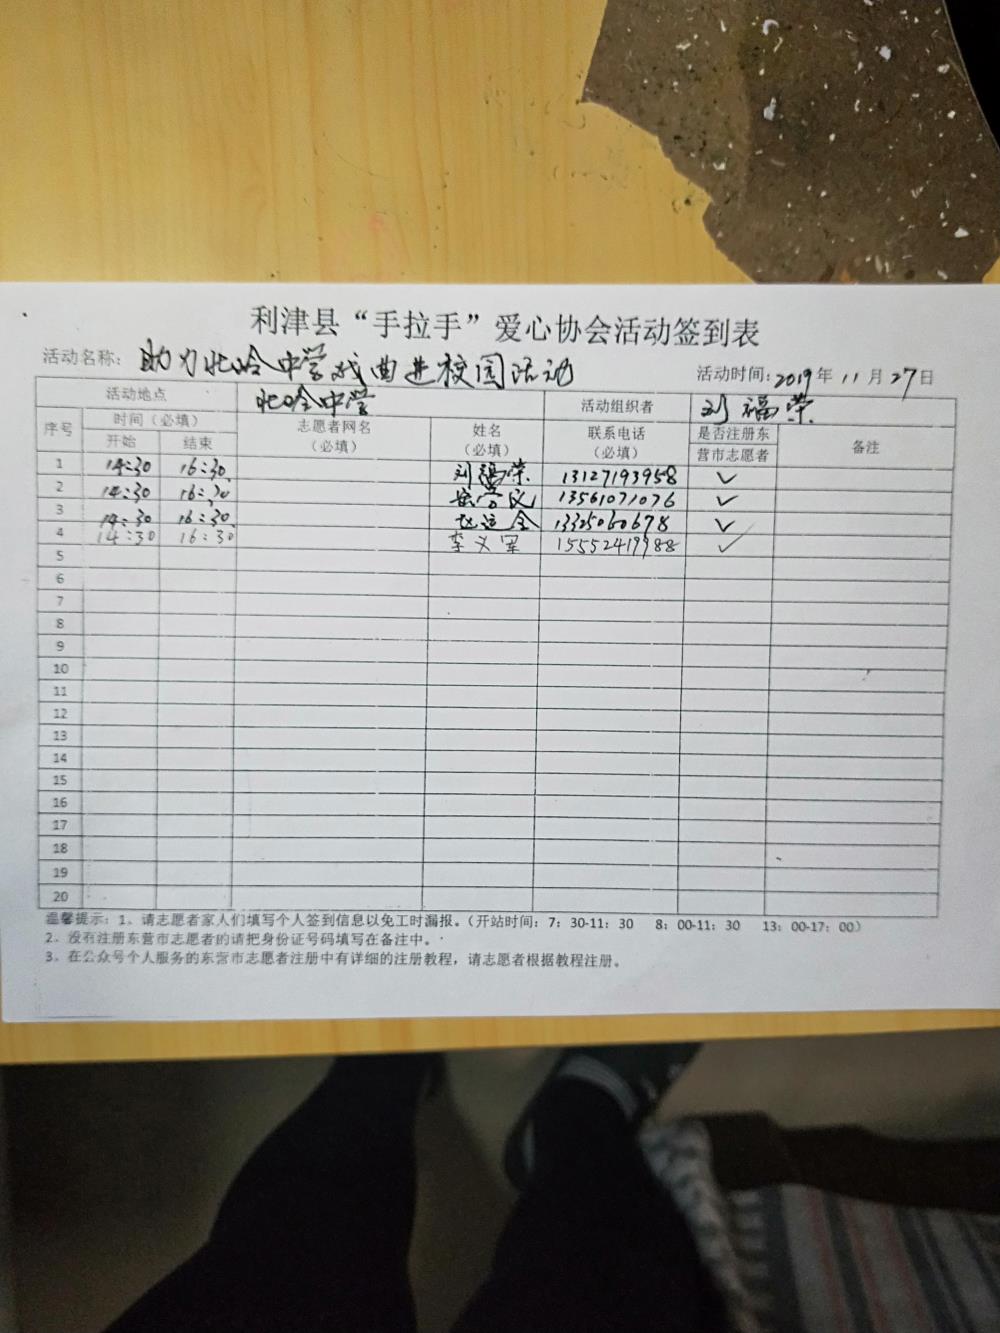 利津县“手拉手”爱心协会活动签到表
活动名称：助力北岭中学戏曲进校园活动 活动时间：2019年11月27日
活动地点 北岭中学 活动组织者 刘福荣
序号 时间（必填） 志愿者网名（必填） 姓名（必填） 联系电话（必填） 是否注册东营市志愿者 备注
开始 结束
1 14:30 16:30 刘福荣 13127193958 ✓
2 14:30 16:30 13561071076 ✓
3 14:30 16:30 赵运全 13325060678 ✓
4 14:30 16:30 李义军 15552419988 ✓
5
6
7
8
9
10
11
12
13
14
15
16
17
18
19
20
温馨提示：1、请志愿者家人们填写个人签到信息以免工时漏报。（开站时间：7：30-11：30 8：00-11：30 13：00-17：00）
2、没有注册东营市志愿者的请把身份证号码填写在备注中。
3、在公众号个人服务的东营市志愿者注册中有详细的注册教程，请志愿者根据教程注册。